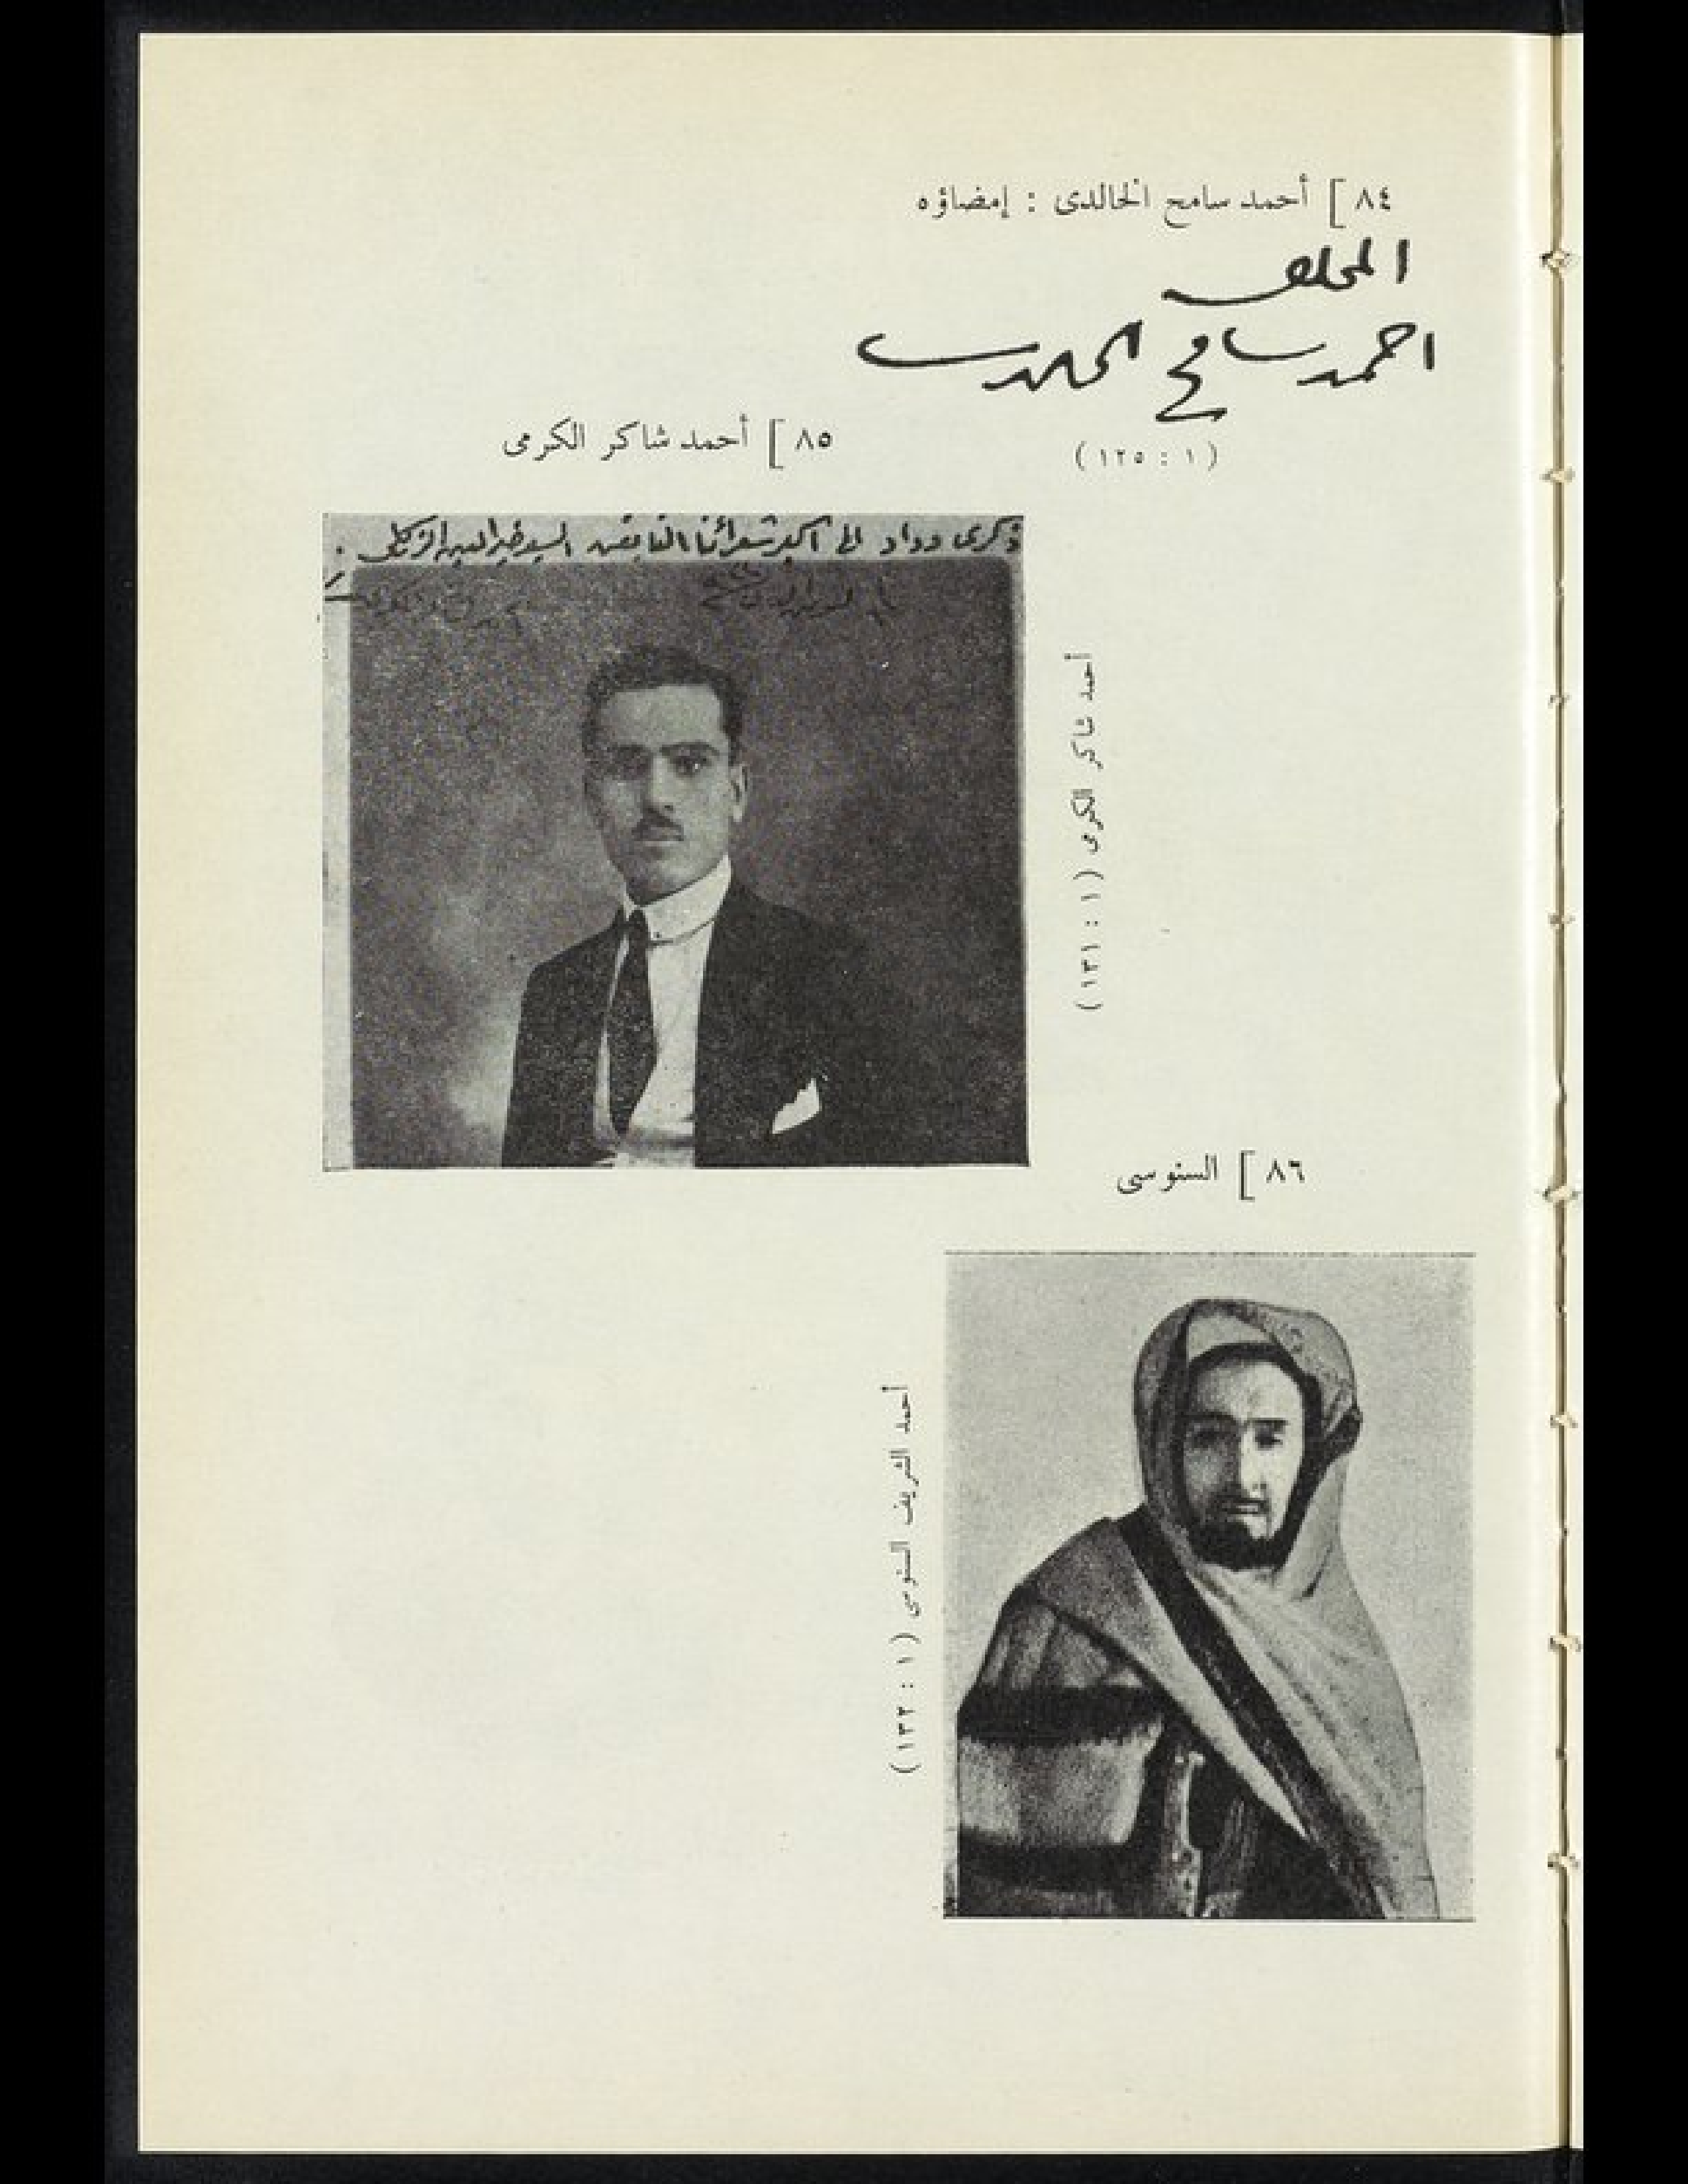 ٨٤ ] أحمد سامح الخالدى : إمضاؤه
المخلص
احمد سامح الخالدي
( ١ : ١٢٥ )
٨٥ ] أحمد شاكر الكرمى
ذكرى وداد الى اكبر شعرائنا النابغين السيد خير الدين الزركلي
أحمد شاكر الكرمى ( ١ : ١٣١ )
٨٦ ] السنوسى
أحمد الشريف السنوسى ( ١ : ١٣٢ )